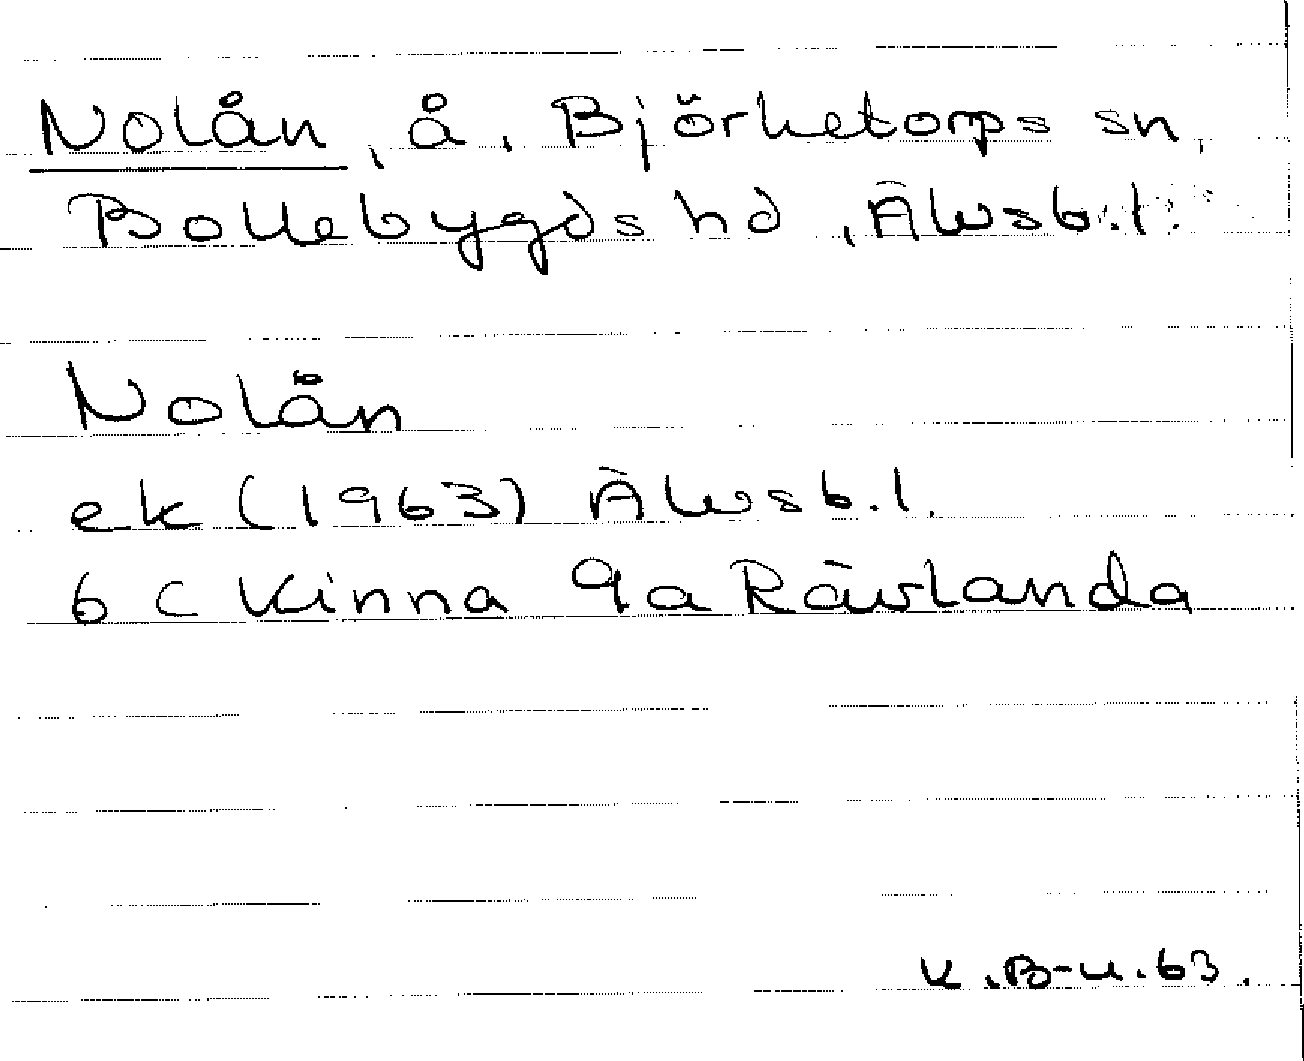 Nolån, å. Björketorps sn,
Bollebygds hd, Älvsb.l.
Nolån
ek (1963) Älvsb.l.
6 C Kinna 9a Rävlanda
K.B-u.63.